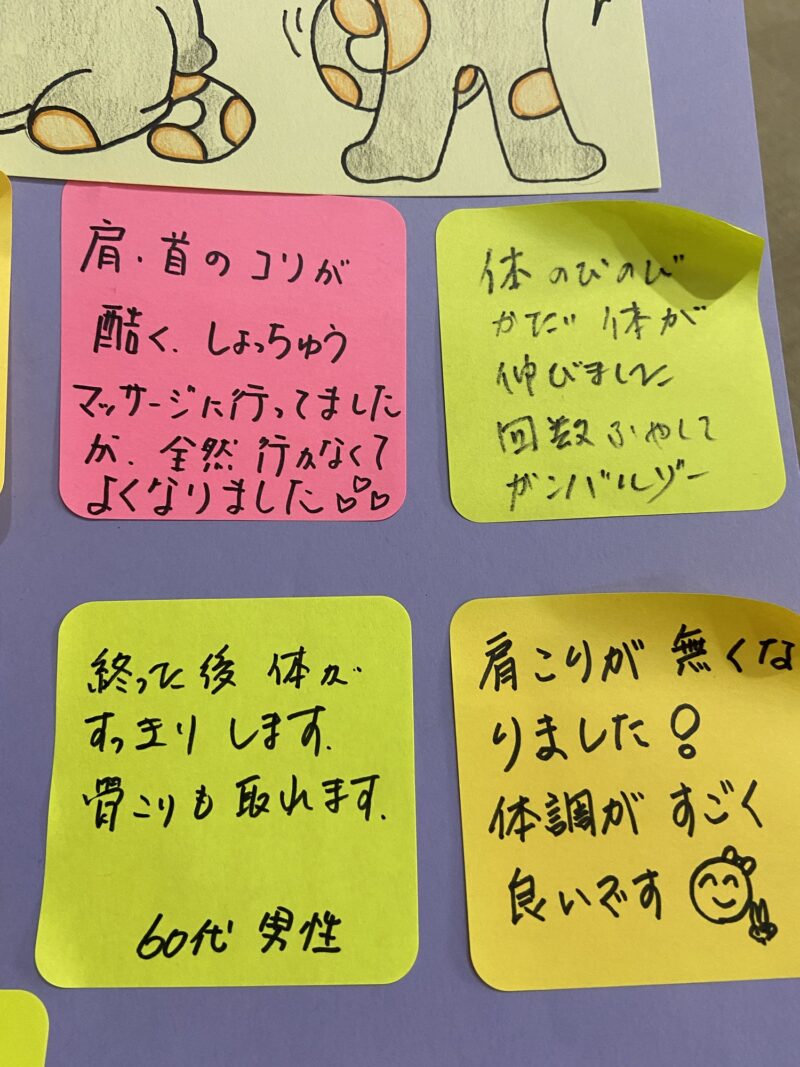 肩・首のコリが
酷く、しょっちゅう
マッサージに行ってました
が、全然行かなくて
よくなりました♡♡♡
体のびのび
かだい体が
伸びました
回数ふやして
ガンバルゾー
終った後体が
すっきりします。
骨こりも取れます。
60代男性
肩こりが無くな
りました!
体調がすごく
良いです